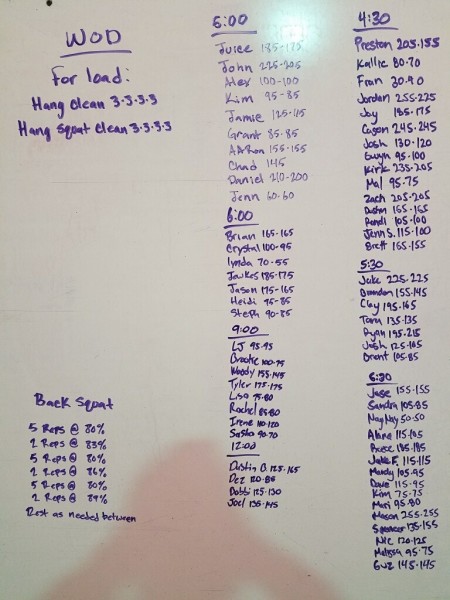 WOD
For load:
Hang clean 3-3-3-3
Hang squat clean 3-3-3-3
Back Squat
5 Reps @ 80%
2 Reps @ 83%
5 Reps @ 80%
2 Reps @ 86%
5 Reps @ 80%
2 Reps @ 89%
Rest as needed between
5:00
Juice 185-175
John 225-205
Alex 100-100
Kim 95-85
Jamie 125-115
Grant 85-85
AARon 155-155
Chad 145
Daniel 210-200
Jenn 60-60
6:00
Brian 165-165
Crystal 100-95
lynda 70-55
185-175
Jason 175-165
Heidi 95-85
Steph 90-85
9:00
LJ 95-95
Brooke 100-95
Woody 155-145
Tyler 175-175
Lisa 75-80
Rachel 85-80
Irene 110-120
Sasha 90-70
12:00
Dustin B. 125-165
Dez 120-85
Dobbi 125-130
Joel 135-145
4:30
Preston 205-155
Kallie 80-70
Fran 90-90
Jordan 255-225
Jay 185-175
Cason 245-245
Josh 130-120
Gwyn 95-100
Kirk 235-205
Mal 95-75
Zach 205-205
Dustin 165-165
Randi 105-100
Jenn S. 115-100
Brett 165-155
5:30
Jake 225-225
Brandon 155-145
Clay 195-165
Tara 135-135
Ryan 195-215
Josh 125-105
Brant 105-85
6:30
Jase 155-155
Sandra 105-85
NayNay 50-50
Alana 115-105
Reese 185-185
Jake F. 115-115
Mandy 105-95
Dave 115-95
Kim 75-75
Mari 95-80
Mason 255-255
Spencer 135-155
Nic 120-125
Melissa 95-75
Guz 145-145